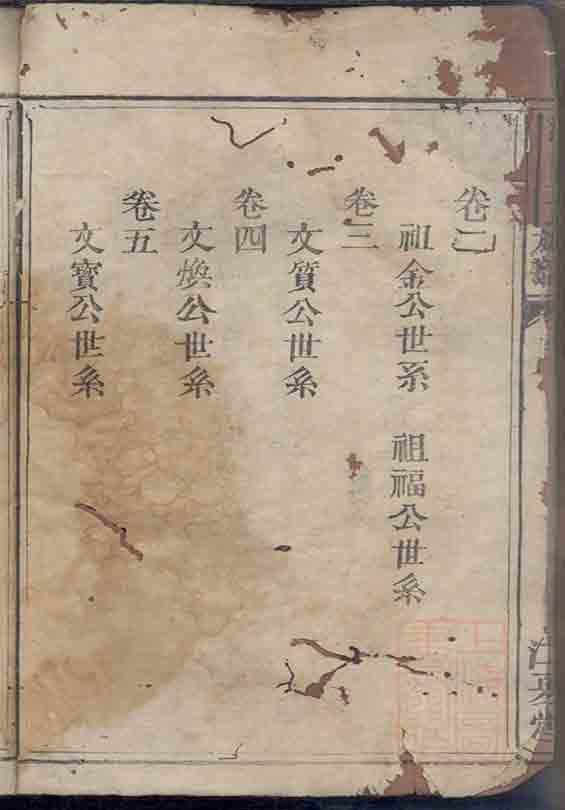 卷二
祖金公世系　祖福公世系
卷三
文質公世系
卷四
文煥公世系
卷五
文寶公世系
江夏堂